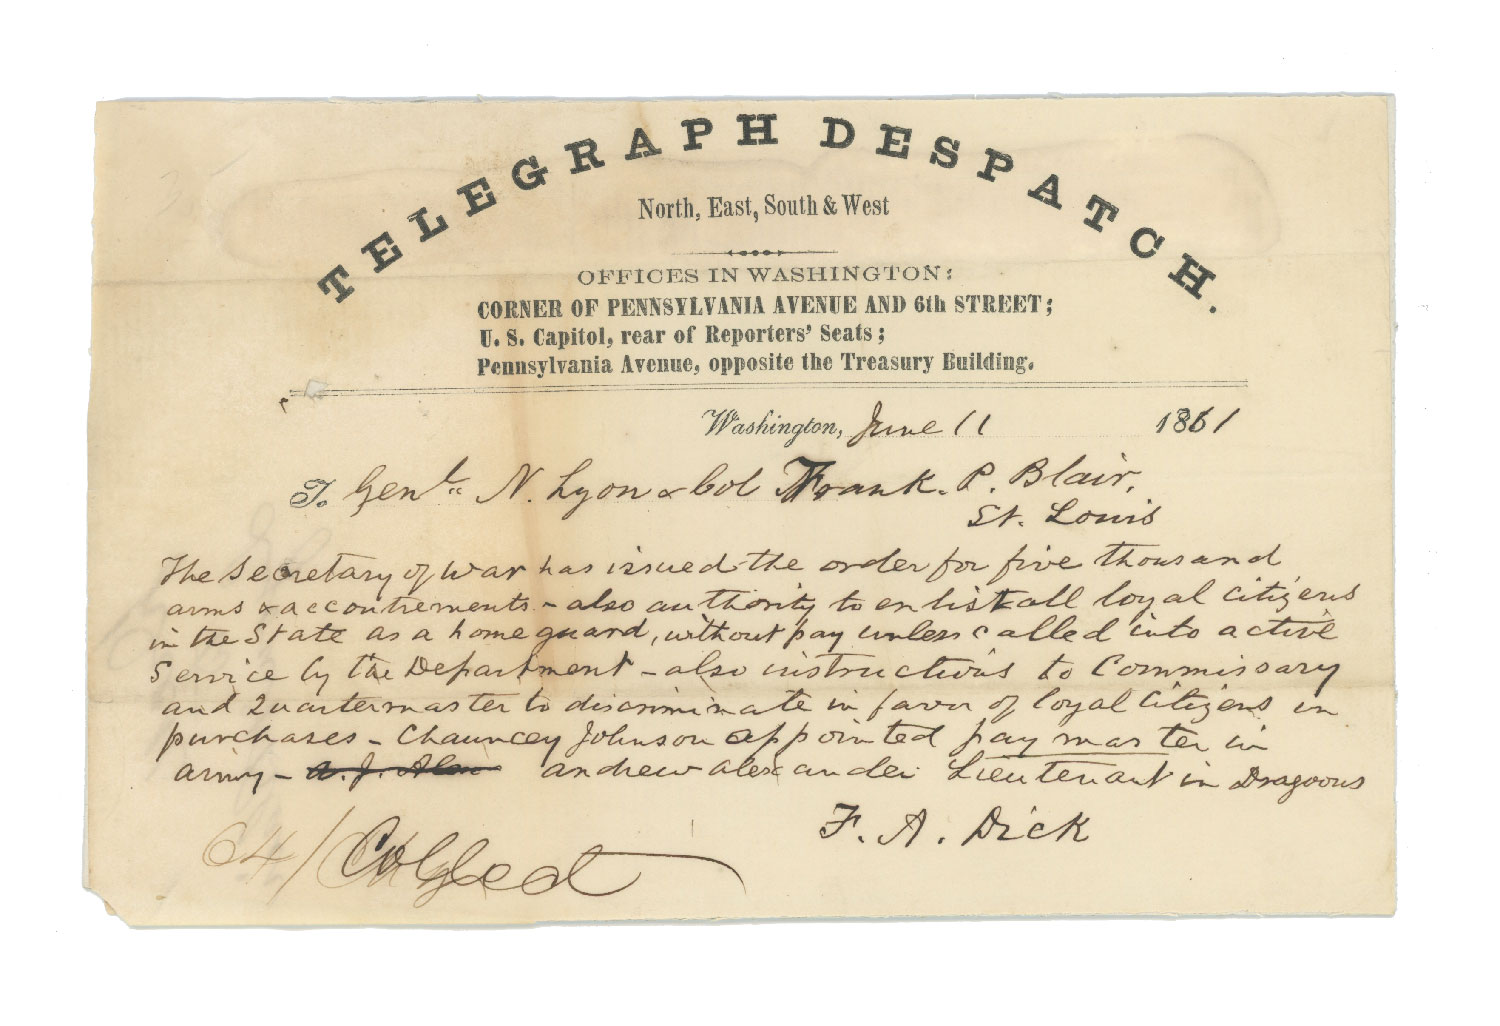 TELEGRAPH DESPATCH.
North, East, South & West
OFFICES IN WASHINGTON:
CORNER OF PENNSYLVANIA AVENUE AND 6th STREET;
U. S. Capitol, rear of Reporters' Seats;
Pennsylvania Avenue, opposite the Treasury Building.
Washington, June 11 1861
To Genl N. Lyon & Col Frank. P. Blair,
St. Louis
The Secretary of War has issued the order for five thousand
arms & accoutrements - also authority to enlist all loyal citizens
in the State as a home guard, without pay unless called into active
Service by the Department - also instructions to Commissary
and Quartermaster to discriminate in favor of loyal Citizens in
purchases - Chauncey Johnson appointed pay master in
army - A. J. Alex andrew alexander Lieutenant in Dragoons
F. A. Dick
64/